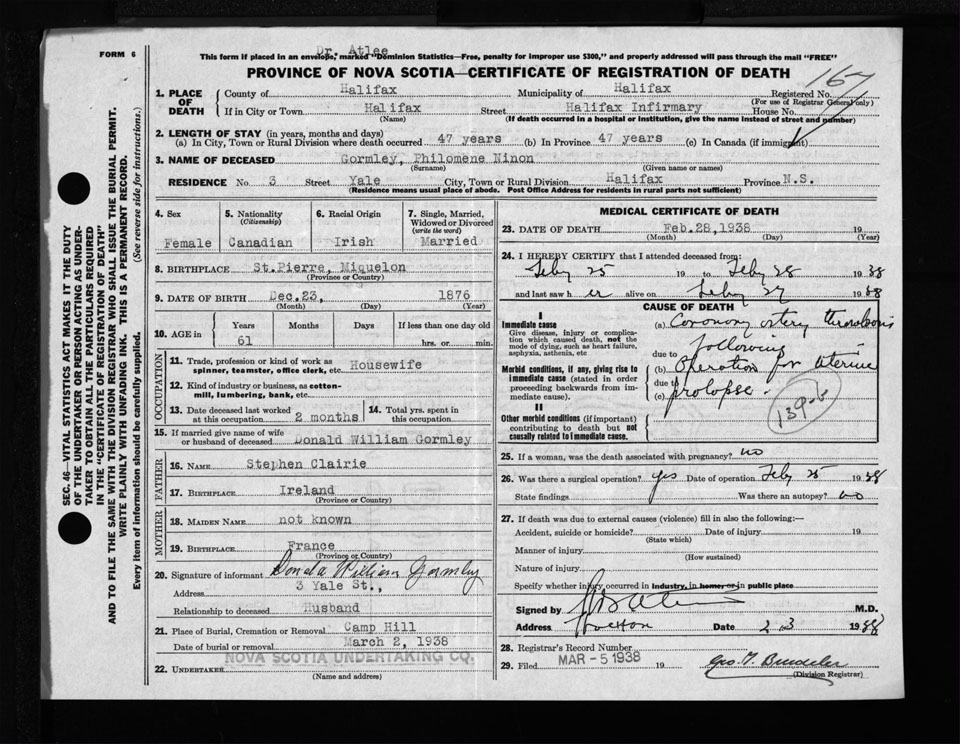 FORM 6
Dr. Atlee
This form if placed in an envelope, marked "Dominion Statistics—Free, penalty for improper use $300," and properly addressed will pass through the mail "FREE"
PROVINCE OF NOVA SCOTIA—CERTIFICATE OF REGISTRATION OF DEATH
167
1. PLACE OF DEATH
County of Halifax Municipality of Halifax Registered No.
(For use of Registrar General only)
If in City or Town Halifax Street Halifax Infirmary House No.
(Name) (If death occurred in a hospital or institution, give the name instead of street and number)
2. LENGTH OF STAY (in years, months and days)
(a) In City, Town or Rural Division where death occurred 47 years (b) In Province 47 years (c) In Canada (if immigrant)
3. NAME OF DECEASED Gormley, Philomene Ninon
(Surname) (Given name or names)
RESIDENCE No. 3 Street Yale City, Town or Rural Division Halifax Province N.S.
(Residence means usual place of abode. Post Office Address for residents in rural parts not sufficient)
4. Sex Female
5. Nationality (Citizenship) Canadian
6. Racial Origin Irish
7. Single, Married, Widowed or Divorced (write the word) Married
8. BIRTHPLACE St.Pierre, Miquelon
(Province or Country)
9. DATE OF BIRTH Dec.23, 1876
(Month) (Day) (Year)
10. AGE in Years Months Days If less than one day old
61 hrs. or min.
OCCUPATION
11. Trade, profession or kind of work as spinner, teamster, office clerk, etc. Housewife
12. Kind of industry or business, as cotton-mill, lumbering, bank, etc.
13. Date deceased last worked at this occupation 2 months
14. Total yrs. spent in this occupation
15. If married give name of wife or husband of deceased Donald William Gormley
FATHER
16. NAME Stephen Clairie
17. BIRTHPLACE Ireland
(Province or Country)
MOTHER
18. MAIDEN NAME not known
19. BIRTHPLACE France
(Province or Country)
20. Signature of informant Donald William Gormley
Address 3 Yale St.,
Relationship to deceased Husband
21. Place of Burial, Cremation or Removal Camp Hill
Date of burial or removal March 2, 1938
22. UNDERTAKER NOVA SCOTIA UNDERTAKING CO.
(Name and address)
MEDICAL CERTIFICATE OF DEATH
23. DATE OF DEATH Feb.28,1938 19
(Month) (Day) (Year)
24. I HEREBY CERTIFY that I attended deceased from:
Feby 25 19 to Feby 28 1938
and last saw her alive on Feby 27 1938
CAUSE OF DEATH
I
Immediate cause
Give disease, injury or complication which caused death, not the mode of dying, such as heart failure, asphyxia, asthenia, etc
Morbid conditions, if any, giving rise to immediate cause (stated in order proceeding backwards from immediate cause).
II
Other morbid conditions (if important) contributing to death but not causally related to immediate cause.
(a) Coronary artery thrombosis
due to following
(b) Operation for uterine
due to
(c) prolapse.
139-b
25. If a woman, was the death associated with pregnancy? no
26. Was there a surgical operation? yes Date of operation Feby 25 1938
State findings Was there an autopsy? no
27. If death was due to external causes (violence) fill in also the following:—
Accident, suicide or homicide? Date of injury 19
(State which)
Manner of injury
(How sustained)
Nature of injury
Specify whether injury occurred in industry, in home, or in public place
Signed by M.D.
Address Date 2.3 1938
28. Registrar's Record Number
29. Filed MAR - 5 1938 19
(Division Registrar)
SEC. 46—VITAL STATISTICS ACT MAKES IT THE DUTY
OF THE UNDERTAKER OR PERSON ACTING AS UNDER-
TAKER TO OBTAIN ALL THE PARTICULARS REQUIRED
IN THE "CERTIFICATE OF REGISTRATION OF DEATH"
AND TO FILE THE SAME WITH THE DIVISION REGISTRAR WHO SHALL ISSUE THE BURIAL PERMIT.
WRITE PLAINLY WITH UNFADING INK. THIS IS A PERMANENT RECORD.
Every item of information should be carefully supplied. (See reverse side for instructions.)